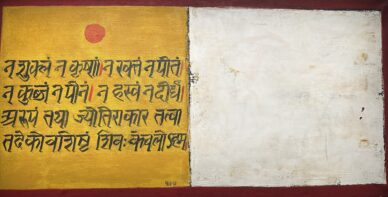 न शुक्लं न कृष्णं॥ न रक्तं न पीतं
न कुब्जं न पीनं। न ह्रस्वं न दीर्घं।
अरूपं तथा ज्योतिराकार तत्वा
तदेकोवशिष्टं शिवः केवलोऽहम